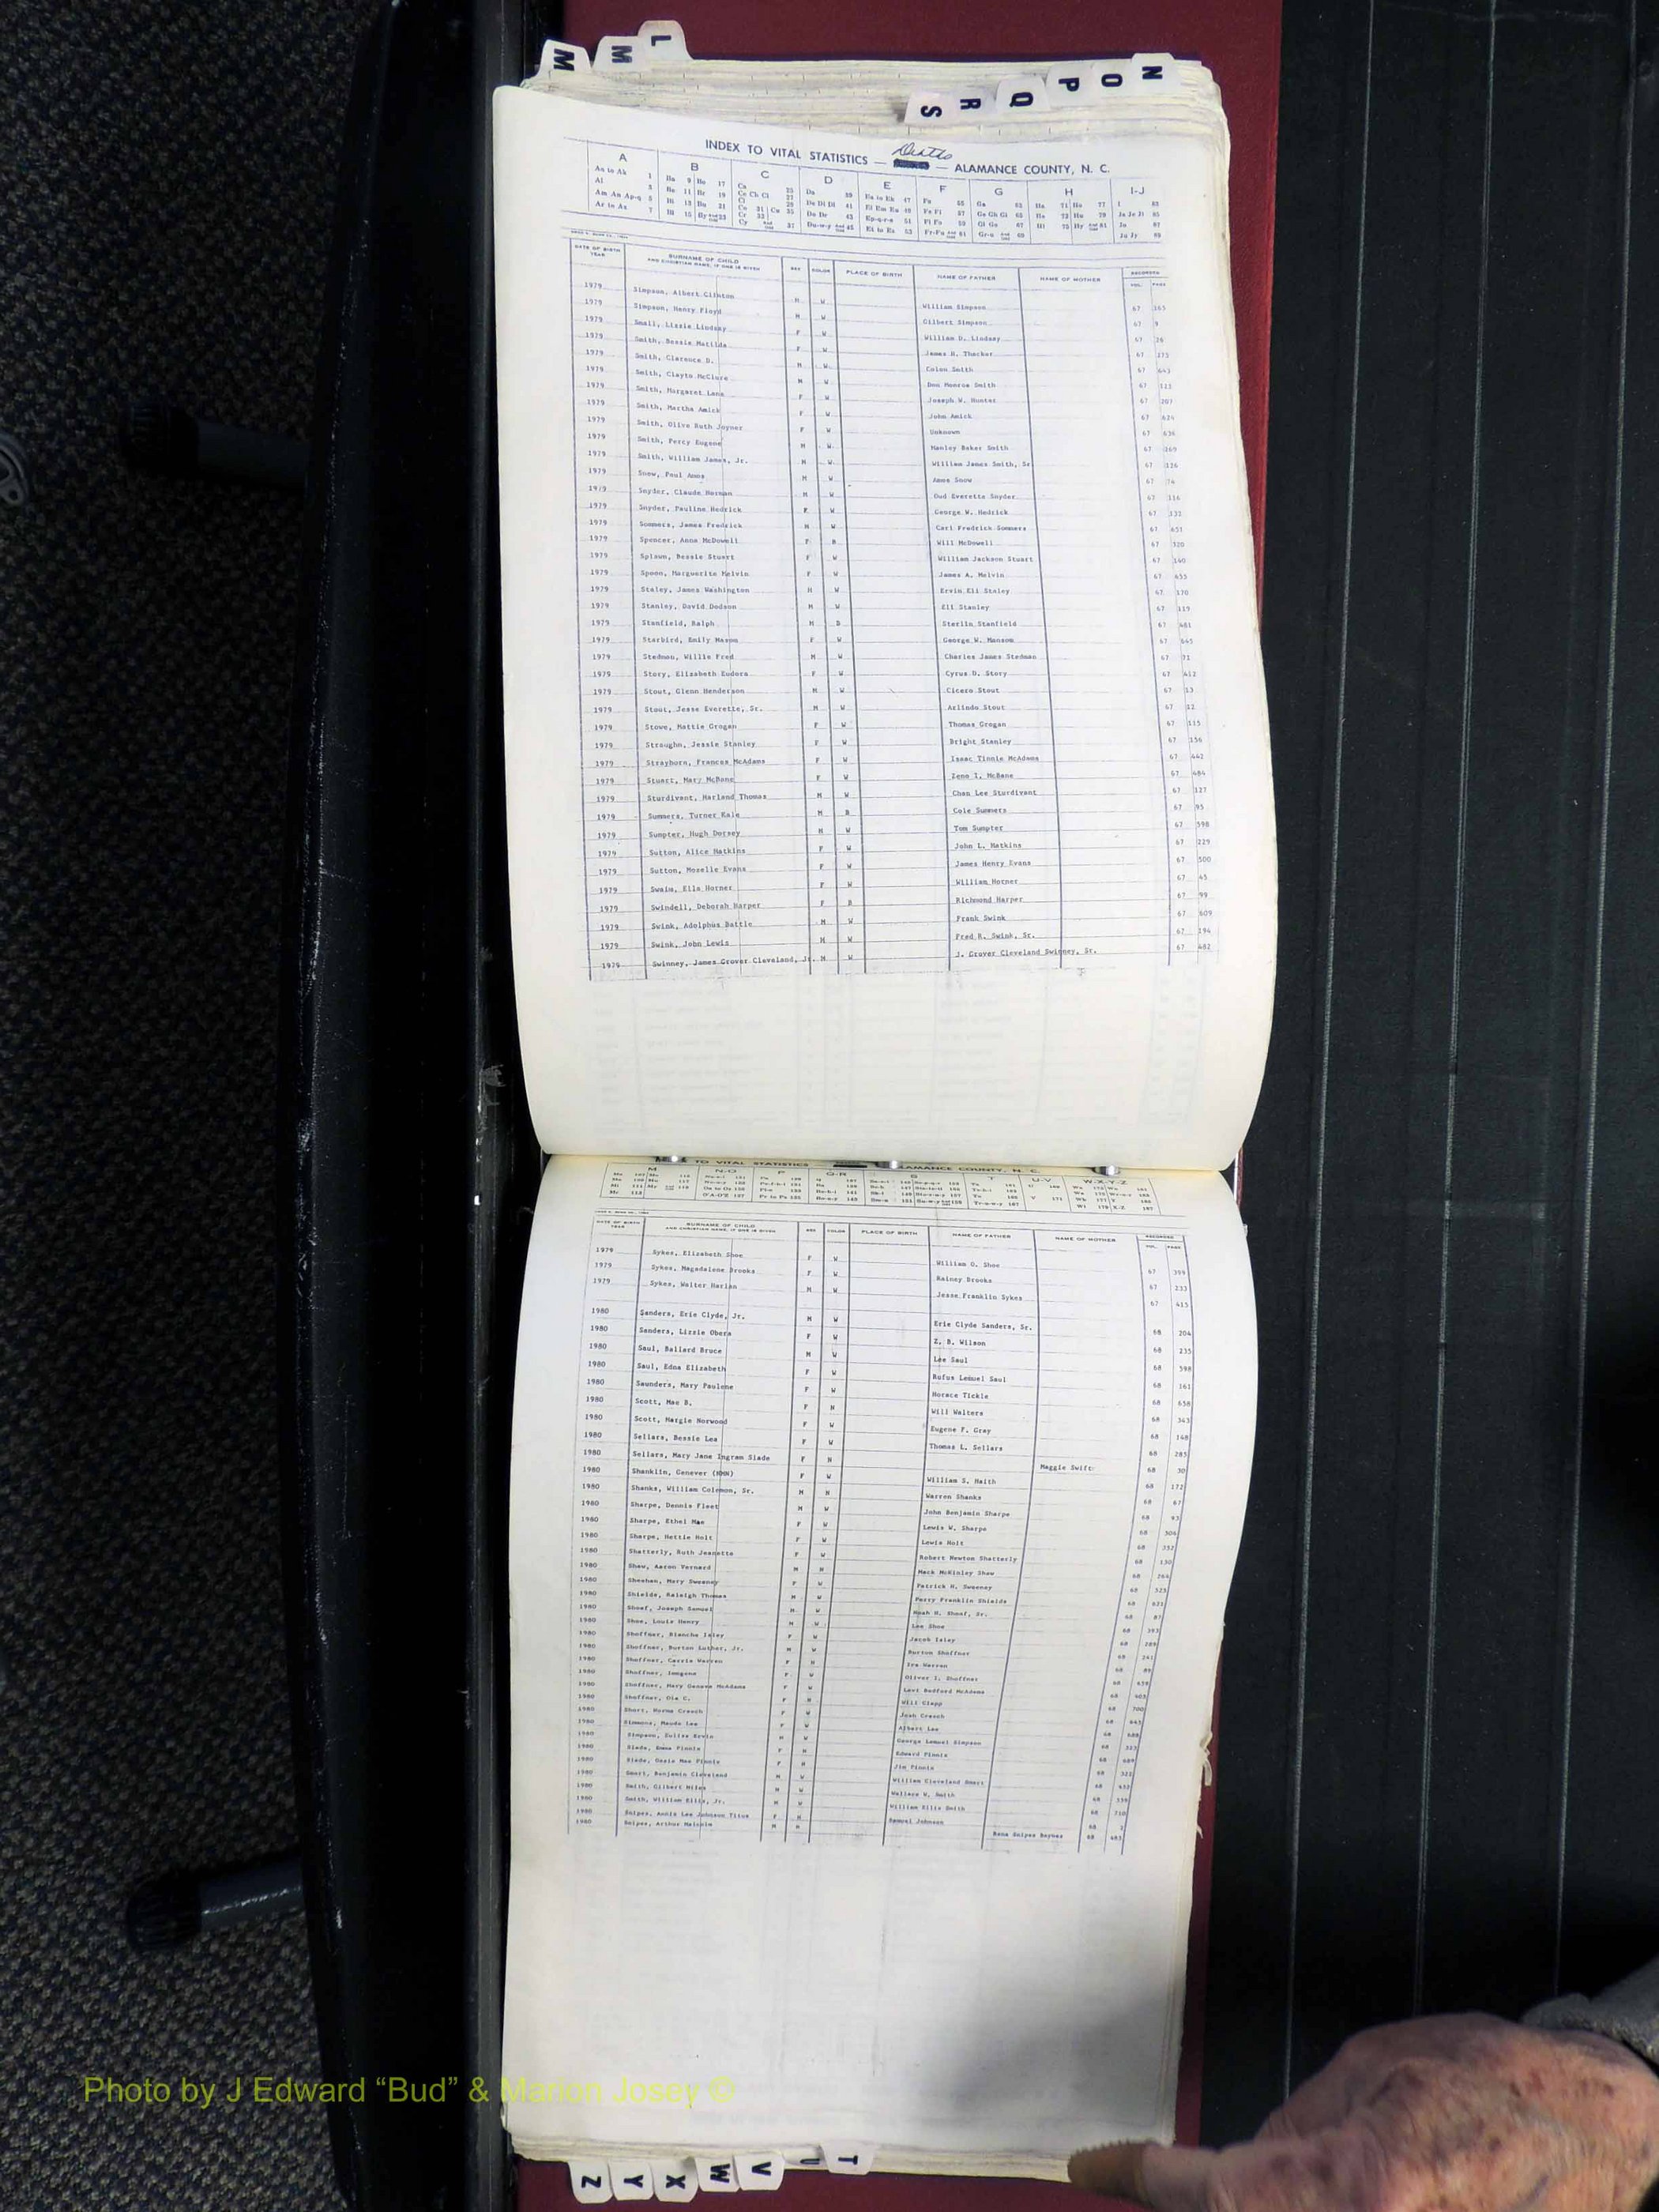 L
M
M
N
O
P
Q
R
S
INDEX TO VITAL STATISTICS — Deaths — ALAMANCE COUNTY, N. C.
A B C D E F G H I-J
DATE OF BIRTH YEAR SURNAME OF CHILD AND CHRISTIAN NAME, IF ONE IS GIVEN SEX COLOR PLACE OF BIRTH NAME OF FATHER NAME OF MOTHER RECORDED VOL. PAGE
1979 Simpson, Albert Clinton M W William Simpson 67 365
1979 Simpson, Henry Floyd M W Gilbert Simpson 67 9
1979 Small, Lizzie Lindsay F W William D. Lindsay 67 26
1979 Smith, Bessie Matilda F W James H. Thacker 67 275
1979 Smith, Clarence D. M W Colon Smith 67 643
1979 Smith, Clayto McClure M W Don Monroe Smith 67 111
1979 Smith, Margaret Lana F W Joseph W. Hunter 67 207
1979 Smith, Martha Amick F W John Amick 67 624
1979 Smith, Olive Ruth Joyner F W Unknown 67 636
1979 Smith, Percy Eugene M W Manley Baker Smith 67 269
1979 Smith, William James, Jr. M W William James Smith, Sr 67 126
1979 Snow, Paul Amos M W Amos Snow 67 74
1979 Snyder, Claude Herman M W Oud Everette Snyder 67 116
1979 Snyder, Pauline Hedrick F W George W. Hedrick 67 332
1979 Sommers, James Fredrick M W Carl Fredrick Sommers 67 651
1979 Spencer, Anna McDowell F B Will McDowell 67 320
1979 Splawn, Bessie Stuart F W William Jackson Stuart 67 160
1979 Spoon, Marguerite Melvin F W James A. Melvin 67 655
1979 Staley, James Washington M W Ervin Eli Staley 67 170
1979 Stanley, David Dodson M W Eli Stanley 67 119
1979 Stanfield, Ralph M B Sterlin Stanfield 67 481
1979 Starbird, Emily Mason F W George W. Manson 67 645
1979 Stedman, Willie Fred M W Charles James Stedman 67 71
1979 Story, Elizabeth Eudora F W Cyrus D. Story 67 412
1979 Stout, Glenn Henderson M W Cicero Stout 67 13
1979 Stout, Jesse Everette, Sr. M W Arlindo Stout 67 12
1979 Stove, Mattie Grogan F W Thomas Grogan 67 115
1979 Straughn, Jessie Stanley F W Bright Stanley 67 156
1979 Strayhorn, Frances McAdams F W Isaac Tinnie McAdams 67 442
1979 Stuart, Mary McBane F W Zeno I. McBane 67 484
1979 Sturdivant, Harland Thomas M W Chan Lee Sturdivant 67 127
1979 Summers, Turner Kale M B Cole Summers 67 95
1979 Sumpter, Hugh Dorsey M W Tom Sumpter 67 598
1979 Sutton, Alice Watkins F W John L. Watkins 67 229
1979 Sutton, Mozelle Evans F W James Henry Evans 67 500
1979 Swaim, Ella Horner F W William Horner 67 45
1979 Swindell, Deborah Harper F B Richmond Harper 67 99
1979 Swink, Adolphus Battle M W Frank Swink 67 609
1979 Swink, John Lewis M W Fred R. Swink, Sr. 67 194
1979 Swinney, James Grover Cleveland, Jr. M W J. Grover Cleveland Swinney, Sr. 67 482
TO VITAL STATISTICS — ALAMANCE COUNTY, N. C.
M N-O P Q-R S T U-V W-X-Y-Z
DATE OF BIRTH YEAR SURNAME OF CHILD AND CHRISTIAN NAME, IF ONE IS GIVEN SEX COLOR PLACE OF BIRTH NAME OF FATHER NAME OF MOTHER RECORDED VOL. PAGE
1979 Sykes, Elizabeth Shoe F W William O. Shoe 67 399
1979 Sykes, Magadalene Brooks F W Rainey Brooks 67 233
1979 Sykes, Walter Harlan M W Jesse Franklin Sykes 67 415
1980 Sanders, Erie Clyde, Jr. M W Erie Clyde Sanders, Sr. 68 204
1980 Sanders, Lizzie Obera F W Z. B. Wilson 68 235
1980 Saul, Ballard Bruce M W Lee Saul 68 598
1980 Saul, Edna Elizabeth F W Rufus Lemuel Saul 68 161
1980 Saunders, Mary Paulene F W Horace Tickle 68 658
1980 Scott, Mae B. F N Will Walters 68 343
1980 Scott, Margie Norwood F W Eugene F. Gray 68 148
1980 Sellars, Bessie Lea F W Thomas L. Sellars 68 285
1980 Sellars, Mary Jane Ingram Slade F N Maggie Swift 68 30
1980 Shanklin, Genever (NMN) F W William S. Haith 68 172
1980 Shanks, William Colemon, Sr. M N Warren Shanks 68 67
1980 Sharpe, Dennis Fleet M W John Benjamin Sharpe 68 93
1980 Sharpe, Ethel Mae F W Lewis W. Sharpe 68 306
1980 Sharpe, Hettie Holt F W Lewis Holt 68 232
1980 Shatterly, Ruth Jeanette F W Robert Newton Shatterly 68 130
1980 Shaw, Aaron Vernard M N Mack McKinley Shaw 68 264
1980 Sheehan, Mary Sweaney F W Patrick H. Sweeney 68 325
1980 Shields, Raleigh Thomas M W Perry Franklin Shields 68 621
1980 Shoaf, Joseph Samuel M W Noah H. Shoaf, Jr. 68 87
1980 Shoe, Louis Henry M W Lee Shoe 68 393
1980 Shoffner, Blanche Isley F W Jacob Isley 68 289
1980 Shoffner, Burton Luther, Jr. M W Burton Shoffner 68 241
1980 Shoffner, Carrie Warren F N Ira Warren 68 89
1980 Shoffner, Imogene F W Oliver I. Shoffner 68 659
1980 Shoffner, Mary Geneva McAdams F W Levi Bedford McAdams 68 403
1980 Shoffner, Ola C. F N Will Clapp 68 700
1980 Short, Norma Creech F W Josh Creech 68 645
1980 Simmons, Maude Lee F W Albert Lee 68 688
1980 Simpson, Eulise Ervin M W George Lemuel Simpson 68 323
1980 Slade, Emma Pinnix F N Edward Pinnix 68 689
1980 Slade, Ossie Mae Pinnix F N Jim Pinnix 68 322
1980 Smart, Benjamin Cleveland M W William Cleveland Smart 68 432
1980 Smith, Gilbert Miles M W Wallace W. Smith 68 556
1980 Smith, William Ellis, Jr. M W William Ellis Smith 68 710
1980 Snipes, Annie Lee Johnson Titus F N Samuel Johnson 68 2
1980 Snipes, Arthur Malcolm M N Rena Snipes Baynes 68 483
Photo by J Edward “Bud” & Marion Josey ©
Z
Y
X
W
V
U
T